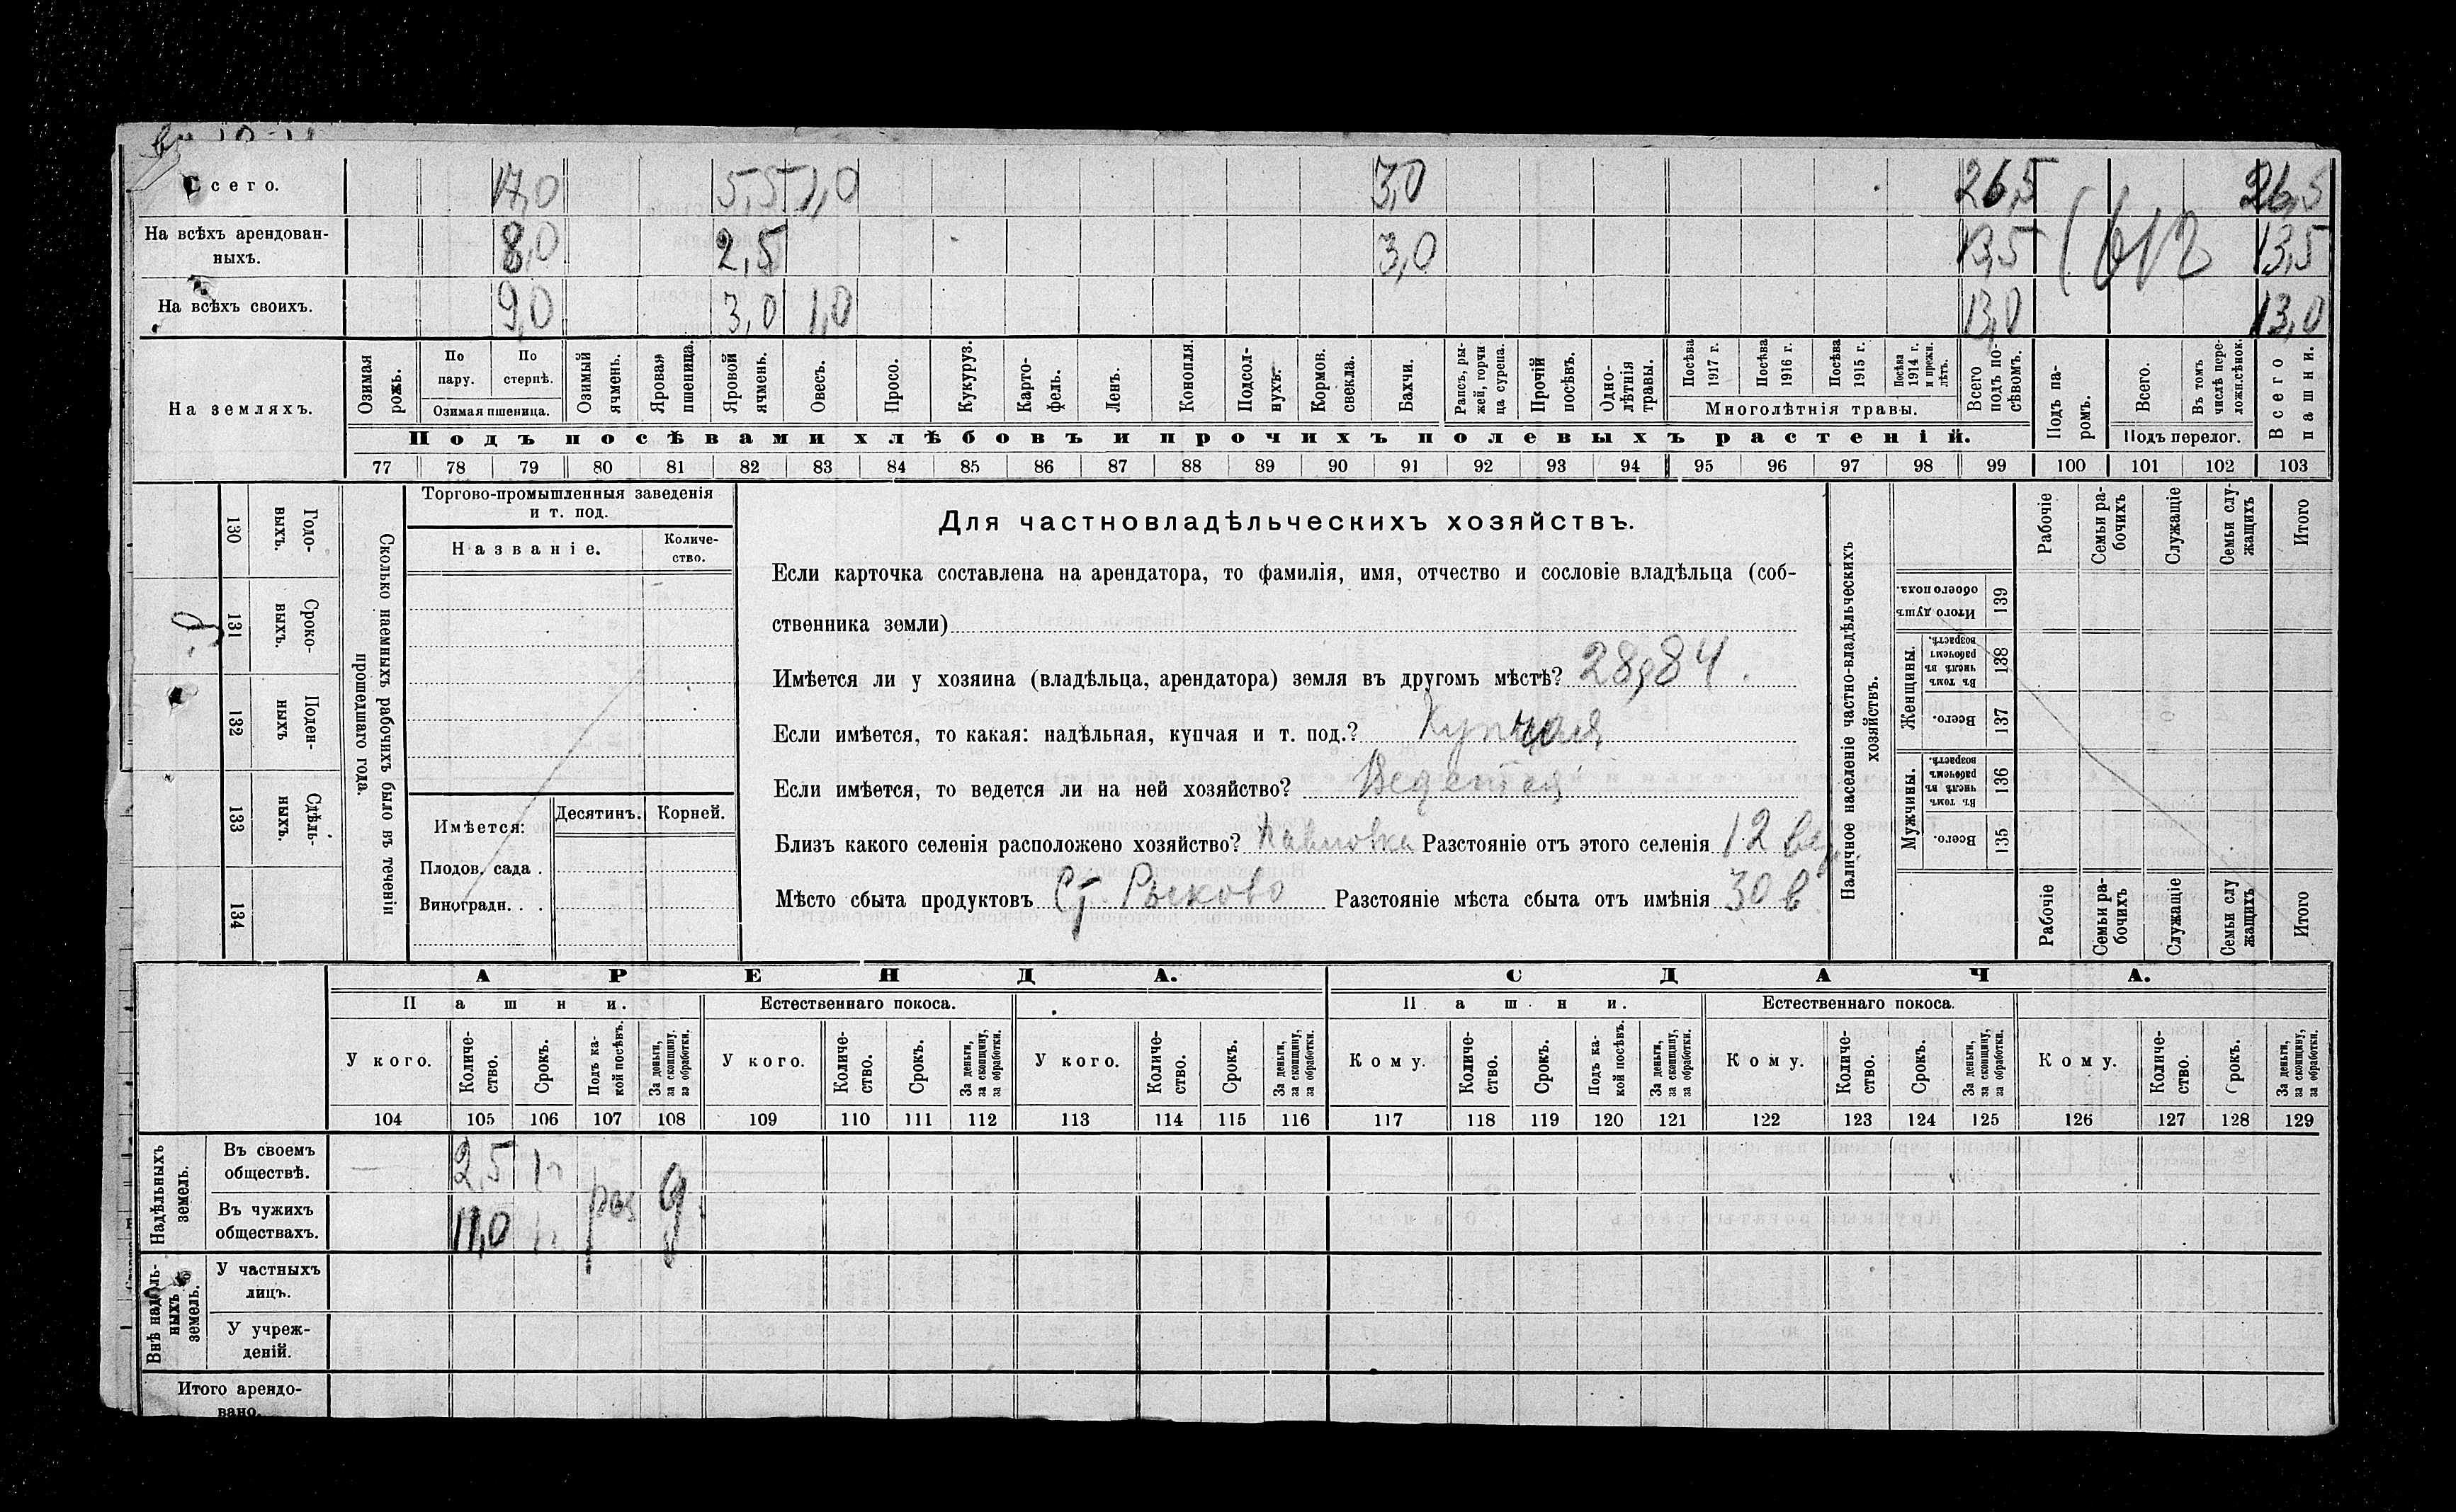 Всего. 17,0 5,5 1,0 3,0 26,5 26,5
На всѣхъ арендован-
ныхъ. 8,0 2,5 3,0 13,5 13,5
На всѣхъ своихъ. 9,0 3,0 1,0 13,0 13,0
На земляхъ.
Озимая рожь.
По пару.
По стернѣ.
Озимая пшеница.
Озимый ячмень.
Яровая пшеница.
Яровой ячмень.
Овесъ.
Просо.
Кукуруз.
Карто-
фель.
Ленъ.
Конопля.
Подсол-
нухъ.
Кормов.
свекла.
Бахчи.
Рапсъ, ры-
жей, горчи
ца сурепа.
Прочій
посѣвъ.
Одно-
лѣтнія
травы.
Посѣва
1917 г.
Посѣва
1916 г.
Посѣва
1915 г.
Посѣва
1914 г.
и прежн.
лѣтъ.
Многолѣтнія травы.
Всего
подъ по-
сѣвомъ.
Подъ па-
ромъ.
Всего.
Въ томъ
числѣ пере-
ложн.сѣнок.
Подъ перелог.
Всего
пашни.
Подъ посѣвами хлѣбовъ и прочихъ полевыхъ растеній.
77 78 79 80 81 82 83 84 85 86 87 88 89 90 91 92 93 94 95 96 97 98 99 100 101 102 103
130 Годо-
выхъ.
131 Сроко-
выхъ.
132 Поден-
ныхъ
133 Сдѣль-
ныхъ.
134
Сколько наемныхъ рабочихъ было въ теченіи
прошедшаго года.
Торгово-промышленныя заведенія
и т. под.
Названіе.
Количе-
ство.
Имѣется:
Десятинъ.
Корней.
Плодов. сада .
Виноградн. . .
Для частновладѣльческихъ хозяйствъ.
Если карточка составлена на арендатора, то фамилія, имя, отчество и сословіе владѣльца (соб-
ственника земли)
Имѣется ли у хозяина (владѣльца, арендатора) земля въ другомъ мѣстѣ? 28,84.
Если имѣется, то какая: надѣльная, купчая и т. под.? Купчая
Если имѣется, то ведется ли на ней хозяйство? Ведется
Близъ какого селенія расположено хозяйство? Павловка Разстояніе отъ этого селенія 12 вер.
Мѣсто сбыта продуктовъ Ст. Рыково Разстояніе мѣста сбыта отъ имѣнія 30 в
Наличное населеніе частно-владѣльческихъ
хозяйствъ.
Рабочіе
Семьи ра-
бочихъ
Служащіе
Семьи слу-
жащихъ
Итого
Итого душъ
обоего пола.
139
Женщины.
Въ томъ
числѣ въ
рабочемъ
возрастѣ.
138
Всего.
137
Мужчины.
Въ томъ
числѣ въ
рабочемъ
возрастѣ.
136
Всего.
135
Рабочіе
Семьи ра-
бочихъ
Служащіе
Семьи слу
жащихъ
Итого
АРЕНДА. СДАЧА.
Пашни. Естественнаго покоса. Пашни. Естественнаго покоса.
У кого.
Количе-
ство.
Срокъ.
Подъ ка-
кой посѣвъ.
За деньги,
за скопщину,
за обработки.
У кого.
Количе-
ство.
Срокъ.
За деньги,
за скопщину,
за обработки.
У кого.
Количе-
ство.
Срокъ.
За деньги,
за скопщину,
за обработки.
Кому.
Количе-
ство.
Срокъ.
Подъ ка-
кой посѣвъ.
За деньги,
за скопщину,
за обработки.
Кому.
Количе-
ство.
Срокъ.
За деньги,
за скопщину,
за обработки.
Кому.
Количе-
ство.
Срокъ.
За деньги,
за скопщину,
за обработки.
104 105 106 107 108 109 110 111 112 113 114 115 116 117 118 119 120 121 122 123 124 125 126 127 128 129
Надѣльныхъ
земель.
Въ своемъ
обществѣ. — 2,5
Въ чужихъ
обществахъ. 11,0 раз д
Внѣ надѣль-
ныхъ
земель.
У частныхъ
лицъ.
У учреж-
деній.
Итого арендо-
вано.